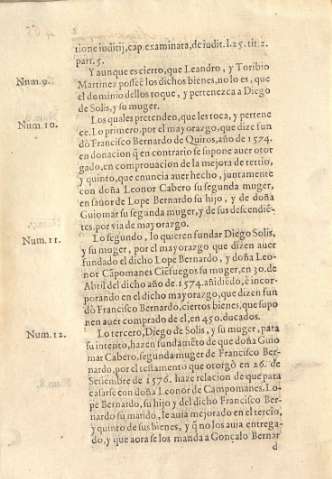 tione iuditij, cap. examinara, de iudit. l. 25. tit. 2.
part. 5.
Num. 9. Y aunque es cierto, que Leandro, y Toribio
Martinez posseē los dichos bienes, no lo es, que
el dominio dellos toque, y pertenezca a Diego
de Solis, y su muger.
Num. 10. Los quales pretenden, que les toca, y pertene
ce. Lo primero, por el mayorazgo, que dize fun
dò Francisco Bernardo de Quiros, año de 1574.
en donacion q̄ en contrario se supone auer otor
gado, en comprouacion de la mejora de tertio,
y quinto, que enuncia auer hecho, juntamente
con doña Leonor Cabero su segunda muger,
en fauor de Lope Bernardo su hijo, y de doña
Guiomar su seganda muger, y de sus descendiē-
tes, por via de mayorazgo.
Num. 11. Lo segundo, lo quieren fundar Diego Solis,
y su muger, por el mayorazgo que dizen auer
fundado el dicho Lope Bernardo, y doña Leo
nor Cāpomanes Ciēfuegos su muger, en 30. de
Abril del dicho año de 1574. añidiēdo, è incor-
porando en el dicho mayorazgo, que dizen fun
dò Francisco Bernardo, ciertos bienes, que supo
nen auer comprado de el, en 450. ducados.
Num. 12. Lo tercero, Diego de Solis, y su muger, para
su intento, hazen fundamēto de que doña Guio
mar Cabero, segunda muger de Francisco Ber-
nardo, por el testamento que otorgò en 26. de
Setiembre de 1576. haze relacion de que para
casarse con doña Leonòr de Campomanes. Lo-
pe Bernardo, su hijo y del dicho Francisco Ber
nardo su marido, le auia mejorado en el tercio,
y quinto de sus bienes, y q̄ no los auia entrega-
do, y que aora se los manda a Gonçalo Bernar
d